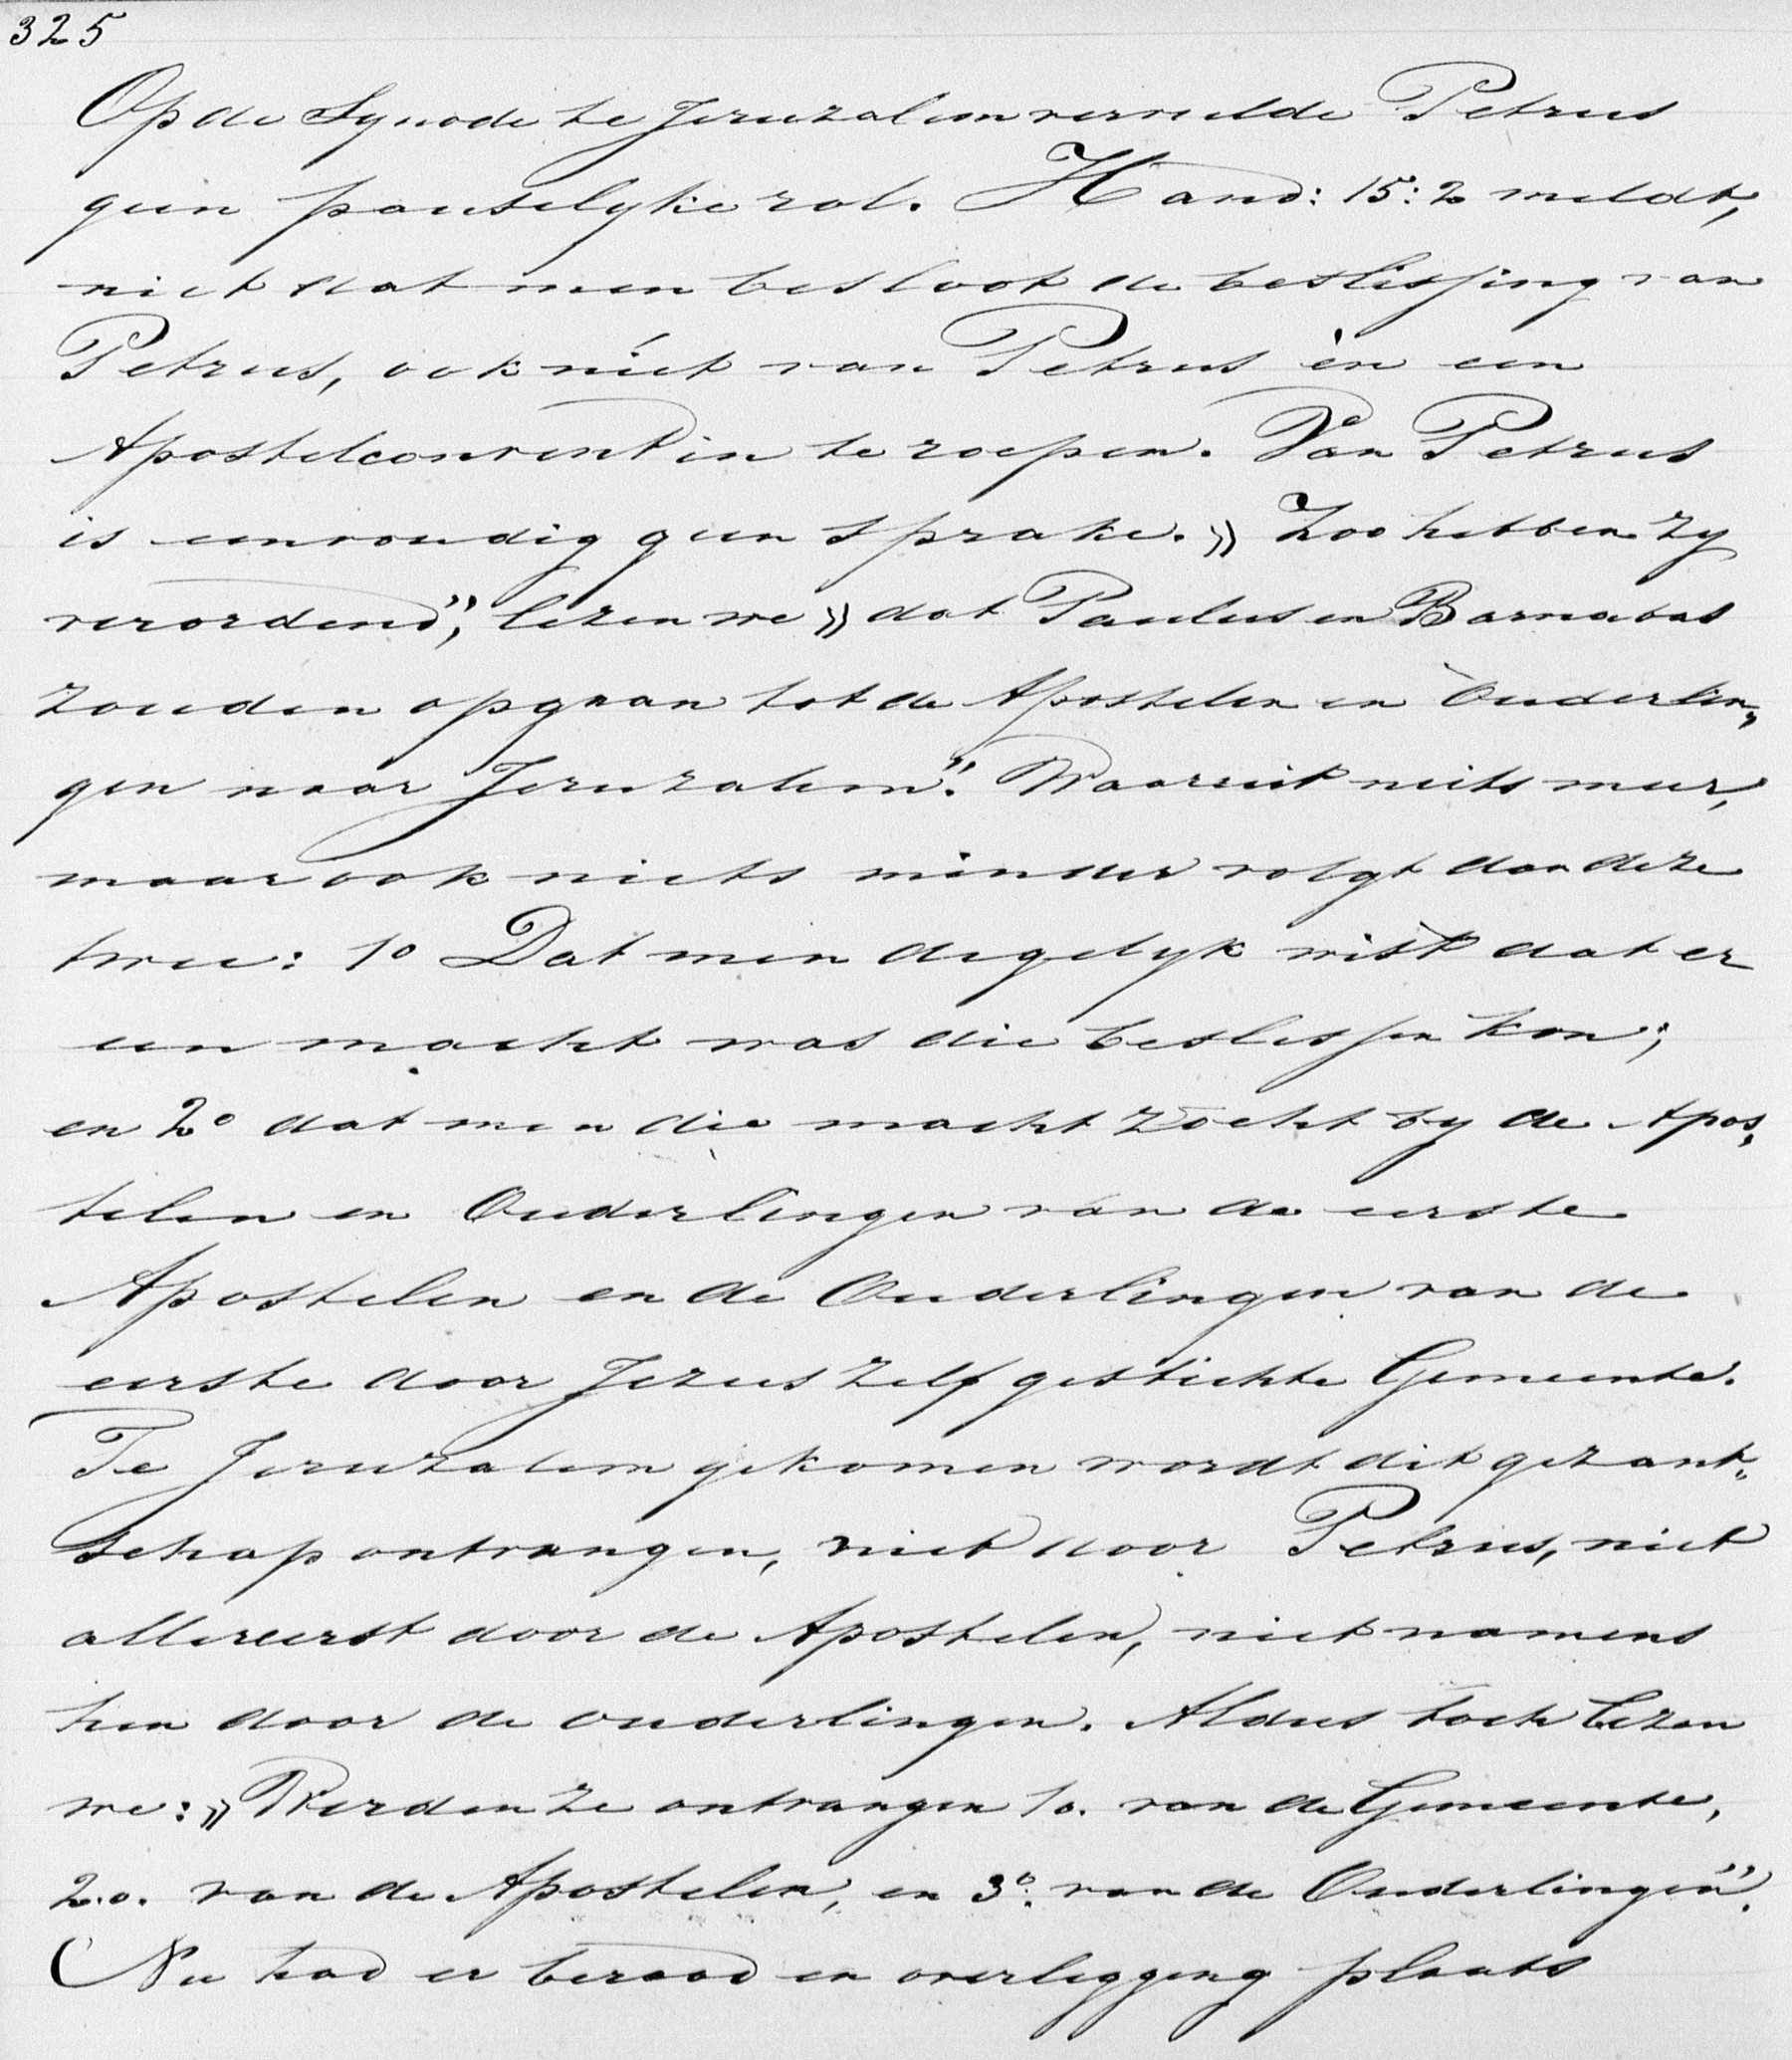 325
Op de Synode te Jeruzalem vervulde Petrus
geen pauselyke rol. Hand: 15:2 meldt,
niet dat men besloot de beslissing van
Petrus, ook niet van Petrus èn een
Apostelconvent in te roepen. Van Petrus
is eenvoudig geen sprake. » Zoo hebben zy
verordend", lezen we » dat Paulus en Barnabas
zouden opgaan tot de Apostelen en Ouderlin„
gen naar Jeruzalem". Waaruit niets meer,
maar ook niets minder volgt dan deze
twee: 1o Dat men degelyk wist dat er
een macht was die beslissen kon;
en 2o dat men die macht zocht by de Apos„
telen en Ouderlingen van de eerste
Apostelen en de Ouderlingen van de
eerste door Jezus zelf gestichte Gemeente.
Te Jeruzalem gekomen wordt dit gezant„
schap ontvangen, niet door Petrus, niet
allereerst door de Apostelen, niet namens
hen door de ouderlingen. Aldus toch lezen
we: » Werden ze ontvangen 1o. van de Gemeente,
2.o. van de Apostelen, en 3o. van de Ouderlingen".
Nu had er beraad en overlegging plaats